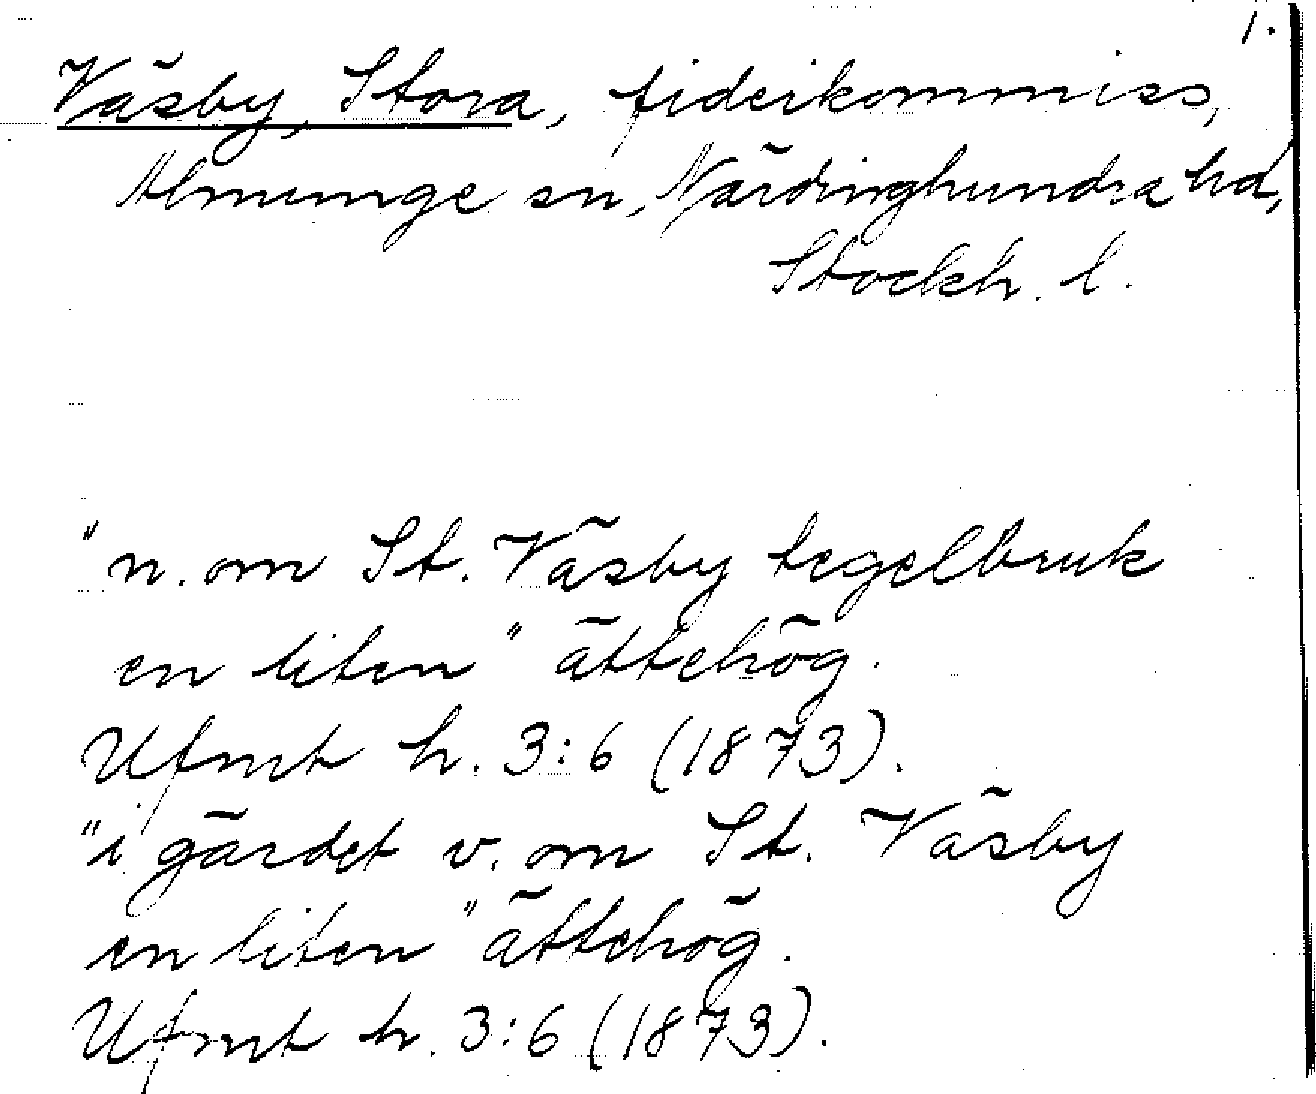 1.
Väsby, Stora, fideikommiss,
Almunge sn, Närdinghundra hd,
Stockh. l.
"n. om St. Väsby tegelbruk
en liten" ättehög.
Ufmt h. 3:6 (1873).
"i gärdet v. om St. Väsby
en liten" ättehög.
Ufmt h. 3:6 (1873).